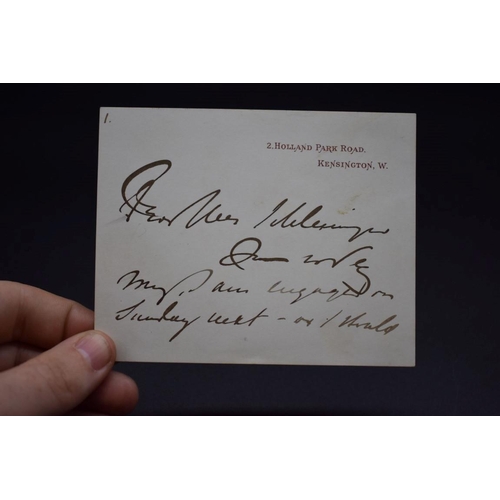 1.
2. HOLLAND PARK ROAD.
KENSINGTON, W.
Dear Schlesinger
I am
engaged on
Sunday next - or I should